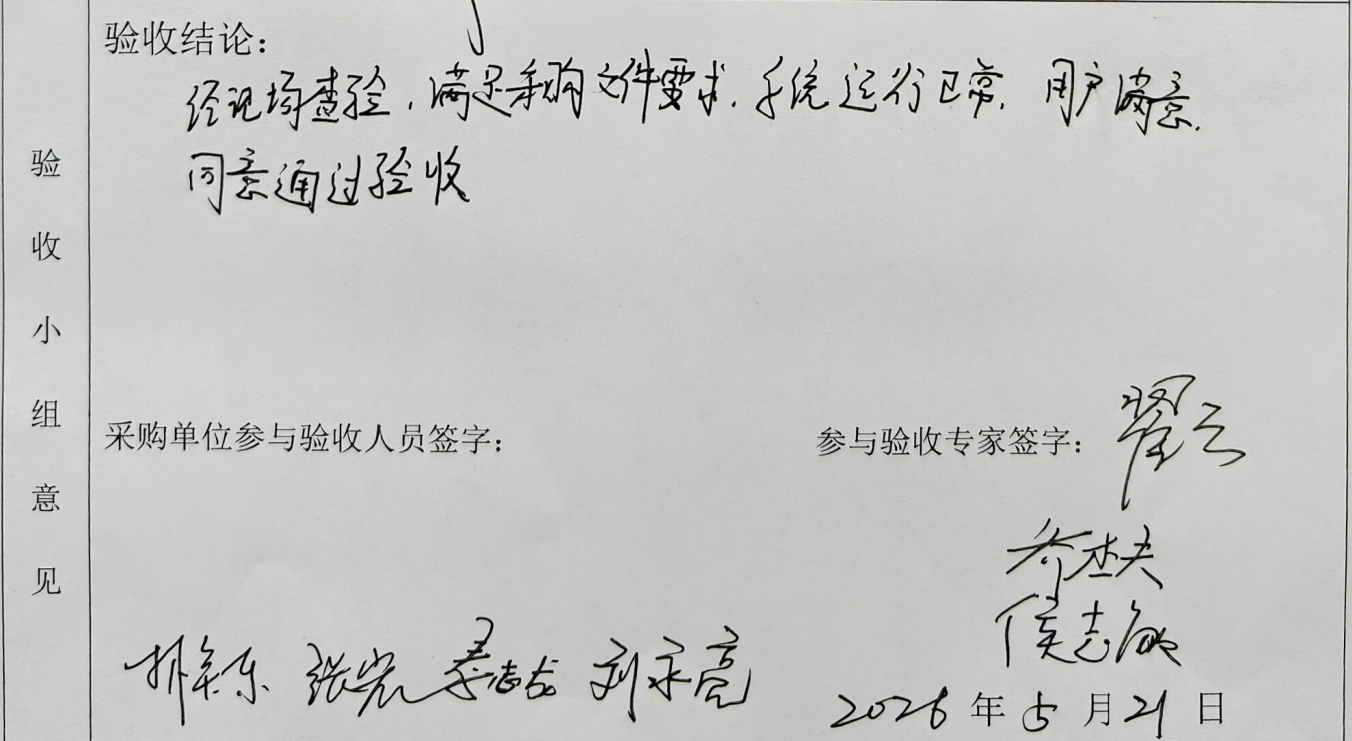 验收小组意见
验收结论:
经现场查验,满足采购文件要求,系统运行正常,用户满意,
同意通过验收
采购单位参与验收人员签字:
参与验收专家签字:翟云
乔杰夫
侯志敏
张岩 秦志龙 刘永亮
2026年5月21日